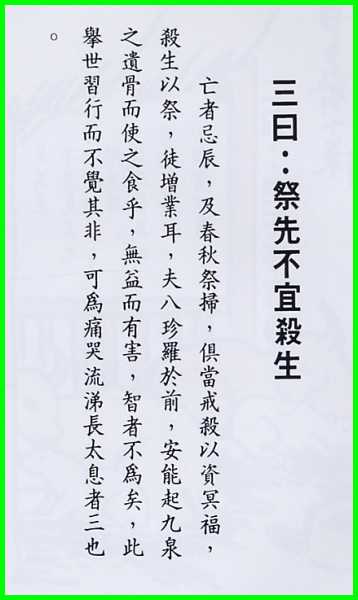 三曰：祭先不宜殺生
亡者忌辰，及春秋祭掃，俱當戒殺以資冥福，
殺生以祭，徒增業耳，夫八珍羅於前，安能起九泉
之遺骨而使之食乎，無益而有害，智者不為矣，此
舉世習行而不覺其非，可為痛哭流涕長太息者三也
。